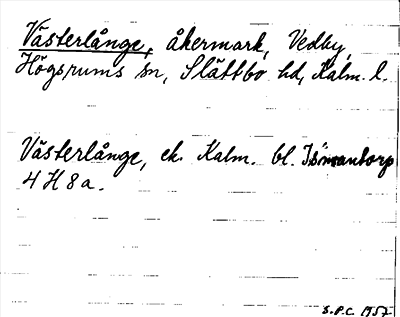 Västerlånge, åkermark, Vedby,
Högsrums sn, Slättbo hd, Kalm. l.
Västerlånge, ek. Kalm. bl. Ismantorp
4 H 8 a.
S.P.C. 1957